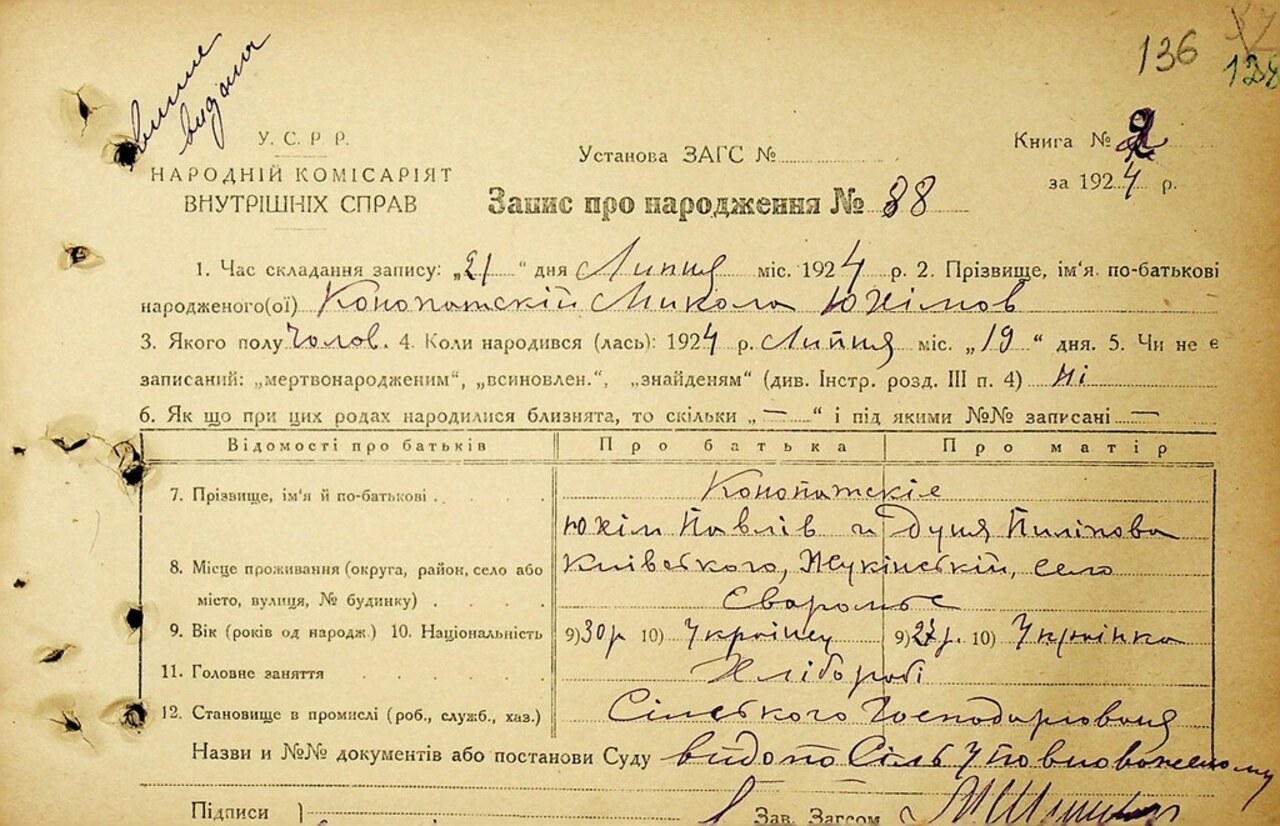 136
виписъ
видана
У. С. Р. Р.
НАРОДНІЙ КОМІСАРІЯТ
ВНУТРІШНІХ СПРАВ
Установа ЗАГС №
Книга № 2
за 1924 р.
Запис про народження № 88
1. Час складання запису: „21“ дня Липня міс. 1924 р. 2. Прізвище, ім'я по-батькові
народженого(ої) Конопатскій Микола Юхімов
3. Якого полу Чолов. 4. Коли народився (лась): 1924 р. Липня міс. „19“ дня. 5. Чи не є
записаний: „мертвонародженим“, „всиновлен.“, „знайденям“ (див. Інстр. розд. III п. 4) Ні
6. Як що при цих родах народилися близнята, то скільки „—“ і під якими №№ записані —
Відомості про батьків Про батька Про матір
7. Прізвище, ім'я й по-батькові Конопатскіе
Юхім Павлів и Душя Пиліпова
8. Місце проживання (округа, район, село або Київського, Жукінській, село
місто, вулиця, № будинку) Сваромье
9. Вік (років од народж.) 10. Національність 9) 30р. 10) Українец 9) 27р. 10) Українка
11. Головне заняття Хлібороб
12. Становище в промислі (роб., служб., хаз.) Сільського Господарювання
Назви и №№ документів або постанови Суду Сіль Уповноваженому
Підписи Зав. Загсом